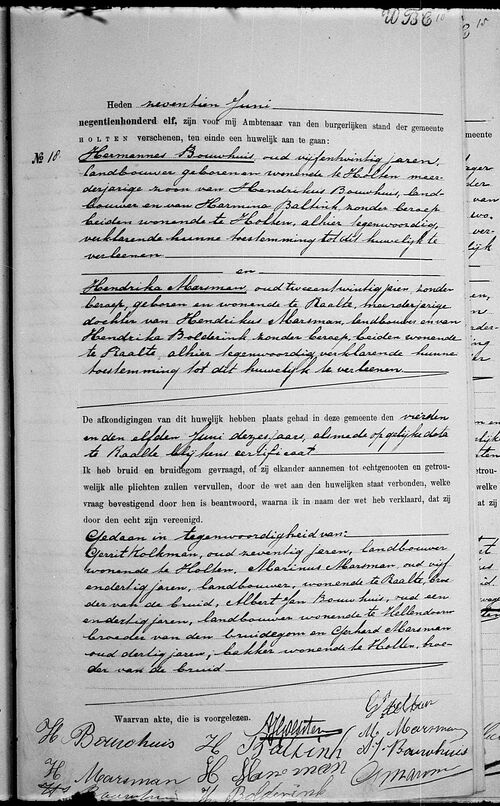 WBE 10
Heden zeventien Juni
negentienhonderd elf, zijn voor mij Ambtenaar van den burgerlijken stand der gemeente
HOLTEN verschenen, ten einde een huwelijk aan te gaan:
№ 18. Hermannes Bouwhuis, oud vijfentwintig jaren,
landbouwer geboren en wonende te Holten meer-
derjarige zoon van Hendrikus Bouwhuis, land-
bouwer en van Harmina Baltink, zonder beroep
beiden wonende te Holten, alhier tegenwoordig,
verklarende hunne toestemming tot dit huwelijk te
verleenen
en
Hendrika Marsman, oud tweeentwintig jaren, zonder
beroep, geboren en wonende te Raalte, meerderjarige
dochter van Hendrikus Marsman, landbouwer en van
Hendrika Bolderink, zonder beroep, beiden wonende
te Raalte, alhier tegenwoordig, verklarende hunne
toestemming tot dit huwelijk te verleenen.
De afkondigingen van dit huwelijk hebben plaats gehad in deze gemeente den vierden
en den elfden Juni dezes jaars, alsmede op gelijke data
te Raalte blijkens certificaat
Ik heb bruid en bruidegom gevraagd, of zij elkander aannemen tot echtgenooten en getrou-
welijk alle plichten zullen vervullen, door de wet aan den huwelijken staat verbonden, welke
vraag bevestigend door hen is beantwoord, waarna ik in naam der wet heb verklaard, dat zij
door den echt zijn vereenigd.
Gedaan in tegenwoordigheid van:
Gerrit Kolkman, oud zeventig jaren, landbouwer
wonende te Holten, Marinus Marsman, oud vijf
endertig jaren, landbouwer, wonende te Raalte, broe
der van de bruid, Albert Jan Bouwhuis, oud een
endertig jaren, landbouwer wonende te Hellendoorn
broeder van den bruidegom en Gerhard Marsman
oud dertig jaren, bakker wonende te Holten, broe-
der van de bruid
Waarvan akte, die is voorgelezen.
H Bouwhuis H Baltink M. Marsman
A J. Bouwhuis
H Marsman H Marsman G Marsman
Bouwhuis H Bolderink